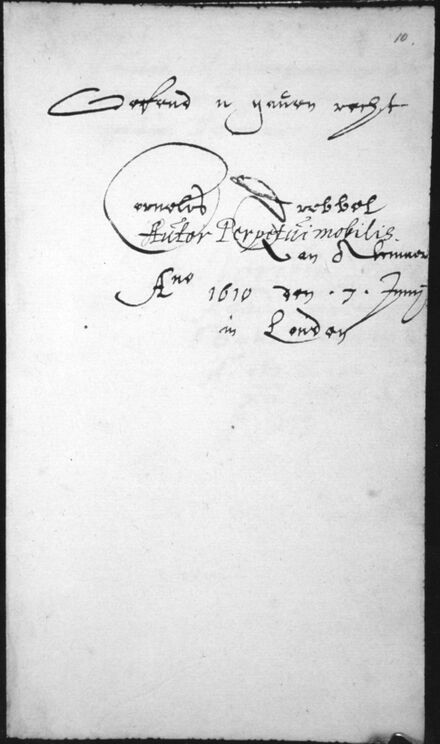 10.
Oeffend u gauen recht
Cornelis Drebbel
Autor Perpetui mobilis.
van Alkmaer
Ano 1610 den . 7 . Junij
in London